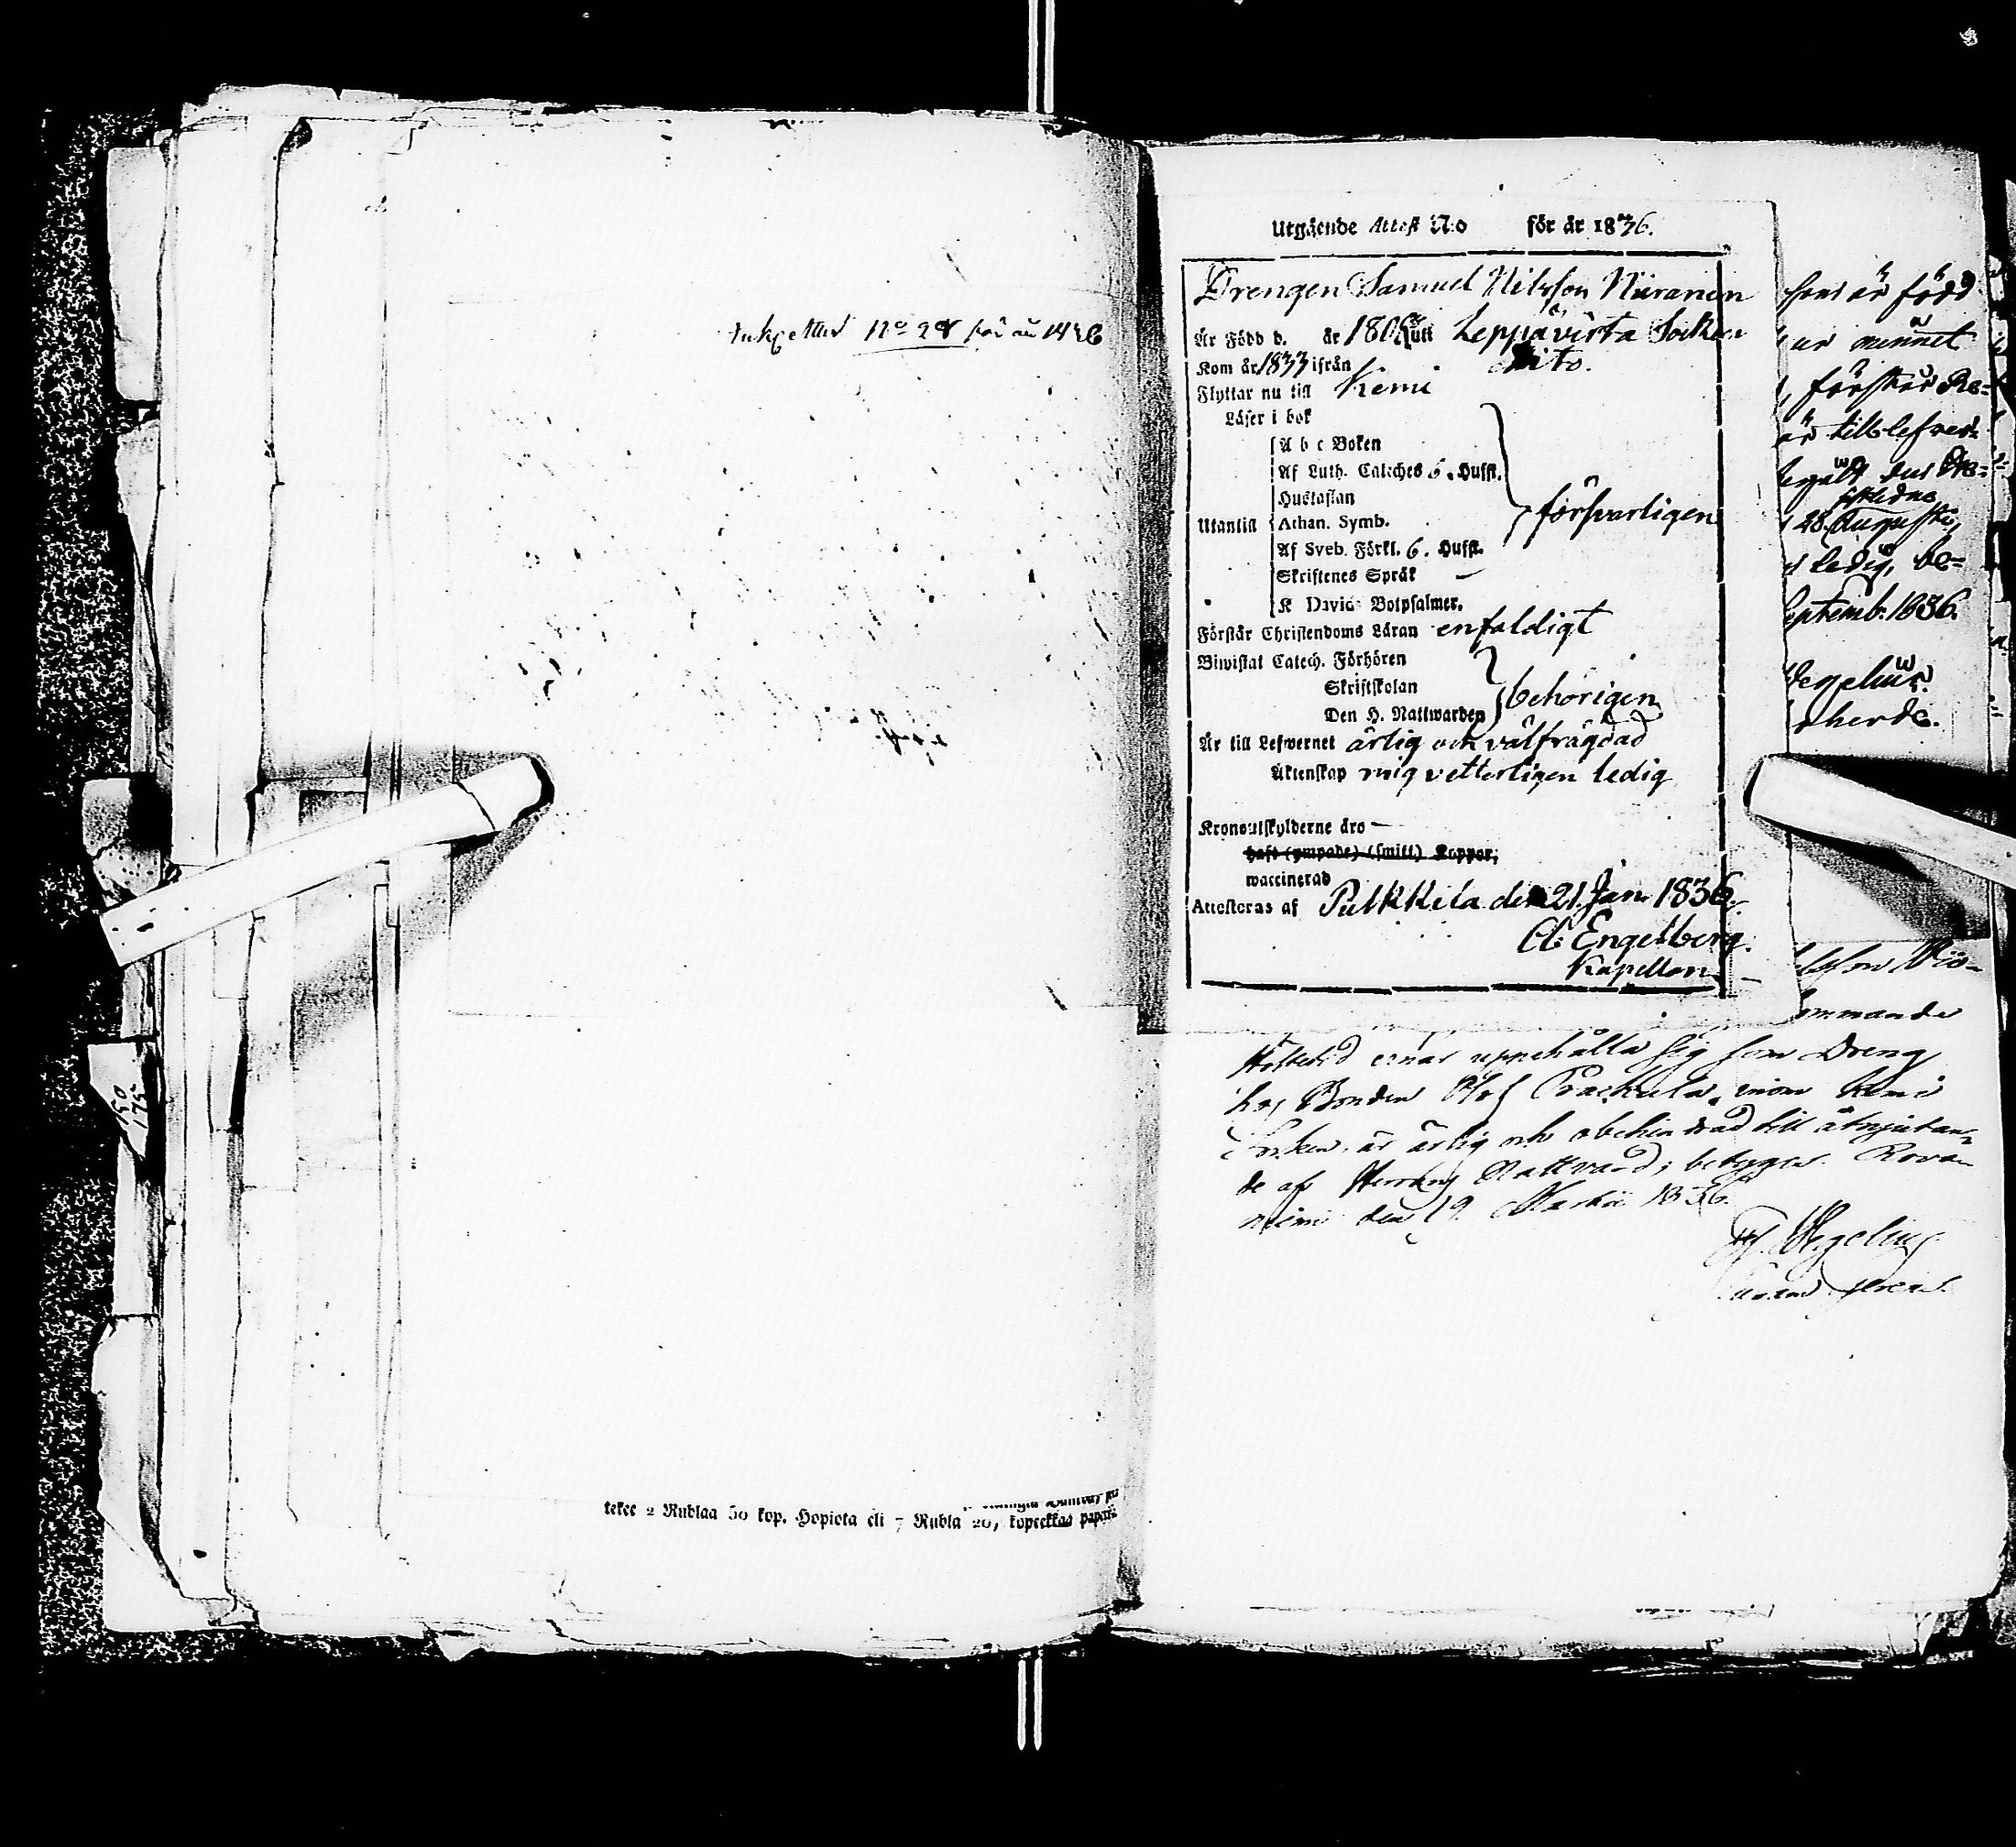 No 28 för år 1836
150
175
tekee 2 Rublaa 50 kop. Hopiota eli 7 Rubla 20, kopeekkaa paperi
Utgående Attest N:o för år 1836.
Drengen Samuel Nilsson Niiranen
Är Född d. år 180 uti Leppävirta Socken
Kom år 1833 ifrån dito.
Flyttar nu till Kemi
Läser i bok
A b c Boken
Af Luth. Cateches 5. Hufst.
Hustaflan
Utantill Athan. Symb. försvarligen
Af Sveb. Förkl. 6. Hufst.
Skriftenes Språk —
K Davids Botpsalmer.
Förstår Christendoms Läran enfaldigt
Biwistat Catech. Förhören
Skriftskolan behörigen
Den H. Nattwarden
Är till Lefwernet ärlig och välfrägdad
Äktenskap mig vetterligen ledig
Kronoutskylderne äro —
haft (ympade) (smitt) Koppor,
waccinerad
Attesteras af Pulkkila den 21 Jan. 1836.
Cl: Engelberg.
Kapellan
hans är född
ur minnet
, förstår Be-
är till lefver-
begått des
28. Augusti,
ledig, be-
Septemb. 1836.
Wegelius.
herde.
son
ommande
uppehålla sig som Dreng
hos Bonden Olof inom Kemi
Socken, är ärlig och obehindrad till åtnjutan-
de af Herrans Nattvard; betygas. Rova-
niemi den 19. Martii 1836.
Wegelius